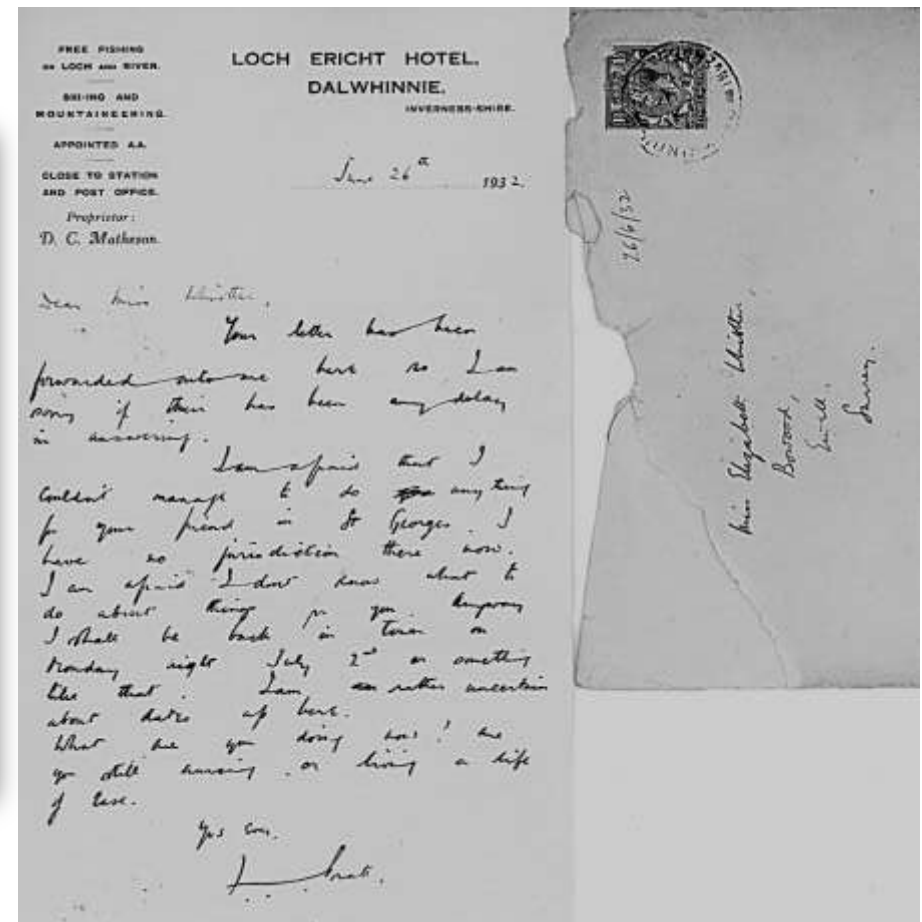 FREE FISHING
ON LOCH AND RIVER.
SKI-ING AND
MOUNTAINEERING.
APPOINTED A.A.
CLOSE TO STATION
AND POST OFFICE.
Proprietor:
D. C. Matheson.
LOCH ERICHT HOTEL,
DALWHINNIE,
INVERNESS-SHIRE.
June 26th 1932.
Dear Miss Whistler,
Your letter has been
forwarded onto me here so I am
sorry if there has been any delay
in answering.
I am afraid that I
couldn't manage to do anything
for your friend in St Georges. I
have no jurisdiction there now.
I am afraid I dont know what to
do about things for you. Anyway
I shall be back in town on
Monday night July 2nd or something
like that. I am rather uncertain
about dates up here.
What are you doing now? are
you still nursing or living a life
of ease.
Yrs
26/6/32
Miss Elizabeth Whistler,
Bowood,
Ewell.
Surrey.